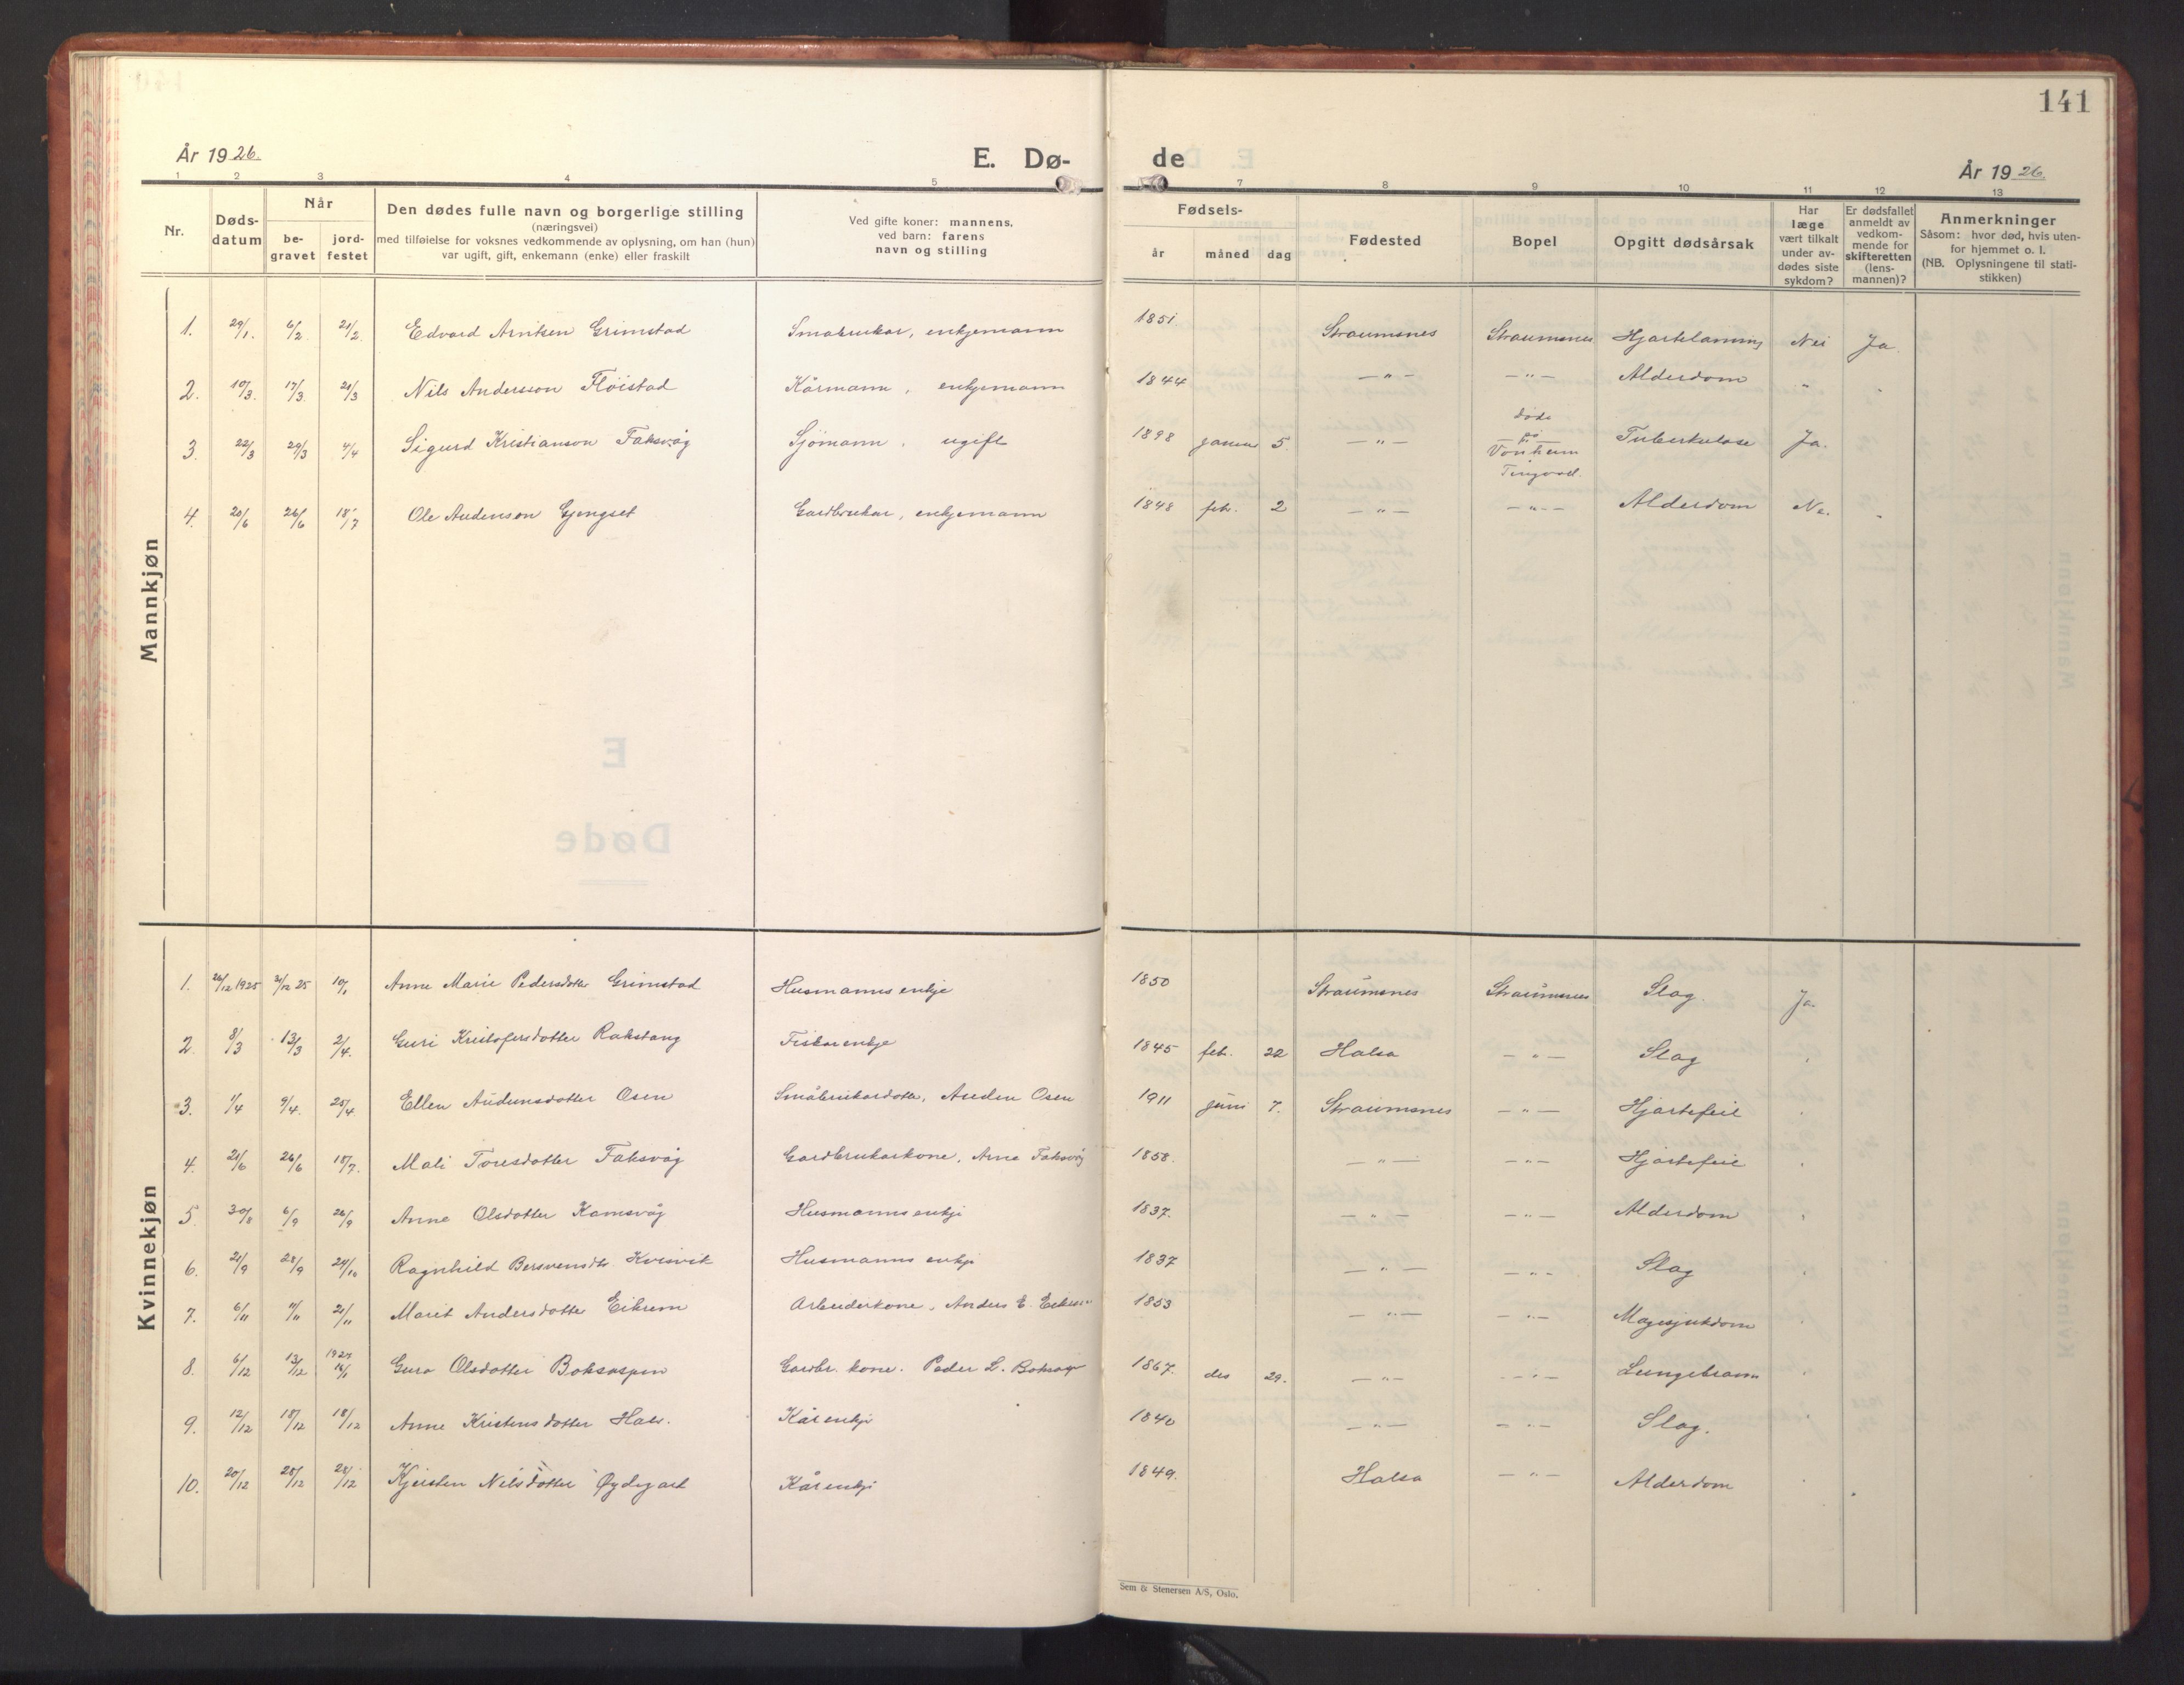 141
År 1926.
E. Dø-
de
År 1926
1 2 3 4 5 7 8 9 10 11 12 13
Nr.
Døds-
datum
Når
be-
gravet
jord-
festet
Den dødes fulle navn og borgerlige stilling
(næringsvei)
med tilføielse for voksnes vedkommende av oplysning, om han (hun)
var ugift, gift, enkemann (enke) eller fraskilt
Ved gifte koner: mannens,
ved barn: farens
navn og stilling
Fødsels-
år måned dag
Fødested
Bopel
Opgitt dødsårsak
Har
læge
vært tilkalt
under av-
dødes siste
sykdom?
Er dødsfallet
anmeldt av
vedkom-
mende for
skifteretten
(lens-
mannen)?
Anmerkninger
Såsom: hvor død, hvis uten-
for hjemmet o. l.
(NB. Oplysningene til stati-
stikken)
Mannkjøn
1. 29/1. 6/2. 21/2. Edvard Arntsen Grimstad Småbrukar, enkjemann 1851 Straumsnes Straumsnes Hjartelamming Nei Ja.
2. 10/3. 17/3. 21/3 Nils Andersson Flöistad Kårmann, enkjemann 1844 — " — — " — Alderdom " "
3. 22/3 29/3 4/4 Sigurd Kristianson Faksvåg Sjömann, ugift 1898 januar 5. — " — døde på Vonheim Tingvoll. Tuberkulose Ja.
4. 20/6 26/6 18/7 Ole Andenson Gjengset Gardbrukar, enkjemann 1848 feb. 2 — " — — " — Alderdom Ne. "
Kvinnekjøn
1. 26/12 1925 31/12 25 10/1 Anne Marie Pedersdotter Grimstad Husmanns enkje 1850 Straumsnes Straumsnes Slag. Ja.
2. 8/3 13/3 2/4. Guri Kristofersdotter Rakstang Fiskarenkje 1845 feb. 22 Halsa — " — Slag "
3. 1/4 9/4. 25/4 Ellen Audunsdotter Osen Småbrukardotter, Audun Osen 1911 juni 7. Straumsnes — " — Hjartefeil "
4. 21/6 26/6 18/7. Mali Toresdotter Faksvåg Gardbrukarkone, Arne Faksvåg 1858. — " — — " — Hjartefeil "
5. 30/8 6/9 26/9 Anne Olsdotter Kamsvåg Husmanns enkje 1837. — " — — " — Alderdom "
6. 21/9 28/9 24/10 Ragnhild Bersvensdtr Kvisvik Husmanns enkje 1837 — " — — " — Slag "
7. 6/11 11/11 21/11 Marit Andersdotter Eikrem Arbeiderkone, Anders E. Eikrem 1853 — " — — " — Magesjukdom "
8. 6/12 13/12 1927 16/1 Guro Olsdotter Boksaspen Gardbr. kone. Peder L. Boksasp 1867. des 29. — " — — " — Lungebrann "
9. 12/12 18/12 18/12 Anne Kristensdotter Hals. Kårenkje 1840 — " — — " — Slag.
10. 20/12 28/12 28/12 Kjersten Nilsdotter Øydegard Kårenkje 1849. Halsa — " — Alderdom "
Sem & Stenersen A/S, Oslo.
E
Døde